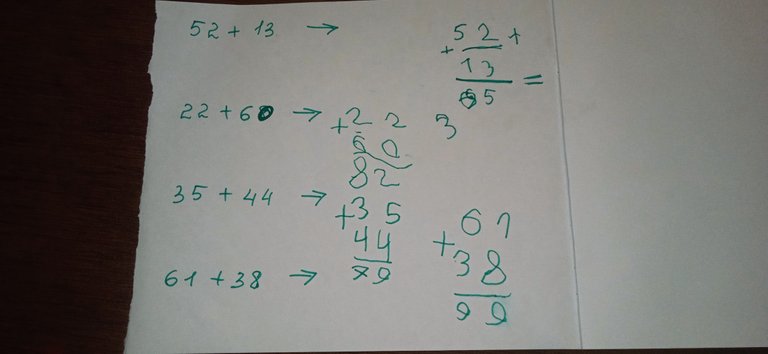 52 + 13 →
52 +
+
13
65 =
22 + 60 →
+22
60
82
3
35 + 44 →
+35
44
79
61 + 38 →
61
+
38
99